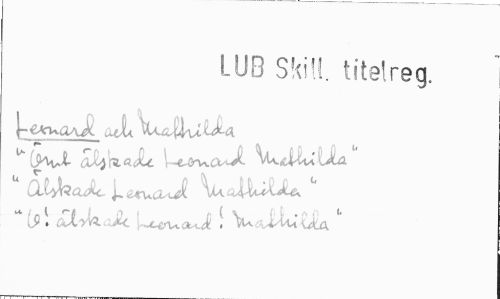 LUB Skill. titelreg.
Leonard och Mathilda
"Ömt älskade Leonard Mathilda"
"Älskade Leonard Mathilda"
"O! älskade Leonard! Mathilda"